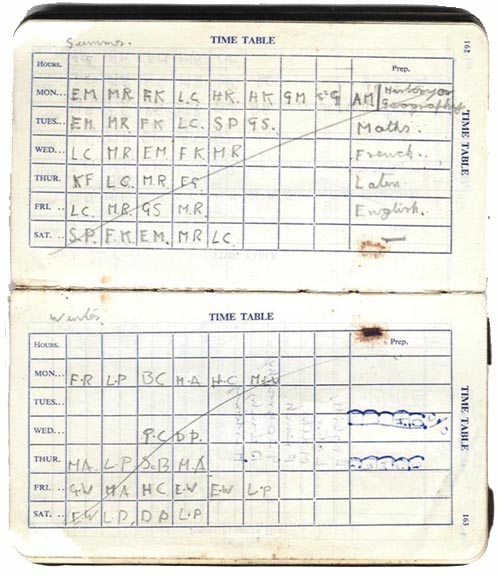 Summer. TIME TABLE 162
HOURS. Prep.
MON... E.M. M.R. F.K L.C. H.K. H.K G.M AM History or
Geography.
TUES... E.M. M.R. F.K L.C. S.P G.S. Maths.
WED... L.C. M.R E.M F.K M.R French.
THUR. K.F L.C. M.R. Latin.
FRI. .. L.C. M.R. G.S M.R. English.
SAT. .. S.P. F.K E.M. M.R L.C. —
TIME TABLE
Winter TIME TABLE
HOURS. Prep.
MON... F.R L.P B.C M.A H.C
TUES...
WED... D.P.
THUR. M.A. L.P S.B M.A
FRI. .. G.W M.A H.C E.W E.W L.P
SAT. .. E.W L.P. D.P L.P
TIME TABLE
163